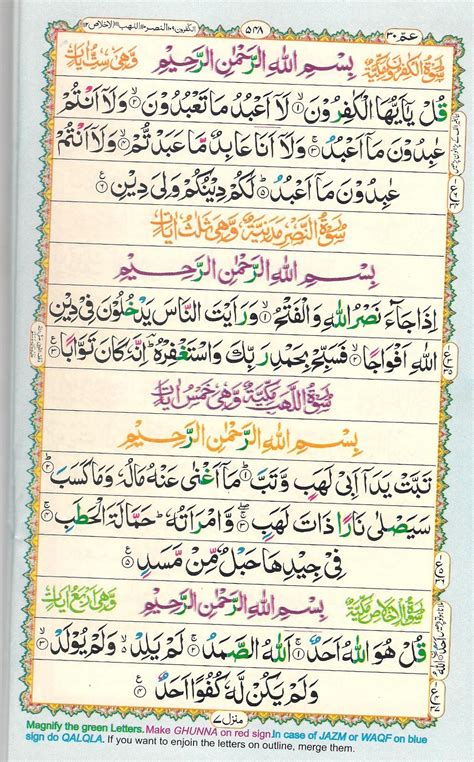 عمّ ٣٠
٥٤٨
الكفرون ١٠٩ النصر ١١٠ اللهب ١١١ الاخلاص ١١٢
سُوْرَةُ الْكٰفِرُوْنَ مَكِّيَّةٌ بِسْمِ اللّٰهِ الرَّحْمٰنِ الرَّحِيْمِ وَّهِىَ سِتُّ اٰيَاتٍ
قُلْ يٰۤاَيُّهَا الْكٰفِرُوْنَ ۙ﴿۱﴾ لَاۤ اَعْبُدُ مَا تَعْبُدُوْنَ ۙ﴿۲﴾ وَلَاۤ اَنْتُمْ
عٰبِدُوْنَ مَاۤ اَعْبُدُ ۚ﴿۳﴾ وَلَاۤ اَنَا عَابِدٌ مَّا عَبَدْتُّمْ ۙ﴿۴﴾ وَلَاۤ اَنْتُمْ
عٰبِدُوْنَ مَاۤ اَعْبُدُ ؕ﴿۵﴾ لَكُمْ دِيْنُكُمْ وَلِىَ دِيْنِ ﴿۶﴾
سُوْرَةُ النَّصْرِ مَدَنِيَّةٌ وَّهِىَ ثَلٰثُ اٰيَاتٍ
بِسْمِ اللّٰهِ الرَّحْمٰنِ الرَّحِيْمِ
اِذَا جَآءَ نَصْرُ اللّٰهِ وَالْفَتْحُ ۙ﴿۱﴾ وَرَاَيْتَ النَّاسَ يَدْخُلُوْنَ فِىْ دِيْنِ
اللّٰهِ اَفْوَاجًا ۙ﴿۲﴾ فَسَبِّحْ بِحَمْدِ رَبِّكَ وَاسْتَغْفِرْهُ ؔؕ اِنَّهٗ كَانَ تَوَّابًا ﴿۳﴾
سُوْرَةُ اللَّهَبِ مَكِّيَّةٌ وَّهِىَ خَمْسُ اٰيَاتٍ
بِسْمِ اللّٰهِ الرَّحْمٰنِ الرَّحِيْمِ
تَبَّتْ يَدَاۤ اَبِىْ لَهَبٍ وَّتَبَّ ؕ﴿۱﴾ مَاۤ اَغْنٰى عَنْهُ مَالُهٗ وَمَا كَسَبَ ؕ﴿۲﴾
سَيَصْلٰى نَارًا ذَاتَ لَهَبٍ ۚۖ﴿۳﴾ وَّامْرَاَتُهٗ ؕ حَمَّالَةَ الْحَطَبِ ۚ﴿۴﴾
فِىْ جِيْدِهَا حَبْلٌ مِّنْ مَّسَدٍ ﴿۵﴾
سُوْرَةُ الْاِخْلَاصِ مَكِّيَّةٌ بِسْمِ اللّٰهِ الرَّحْمٰنِ الرَّحِيْمِ وَّهِىَ اَرْبَعُ اٰيَاتٍ
قُلْ هُوَ اللّٰهُ اَحَدٌ ۚ﴿۱﴾ اَللّٰهُ الصَّمَدُ ۚ﴿۲﴾ لَمْ يَلِدْ ۙ وَلَمْ يُوْلَدْ ۙ﴿۳﴾
وَلَمْ يَكُنْ لَّهٗ كُفُوًا اَحَدٌ ﴿۴﴾
منزل ٧
Magnify the green Letters. Make GHUNNA on red sign. In case of JAZM or WAQF on blue
sign do QALQLA. If you want to enjoin the letters on outline, merge them.